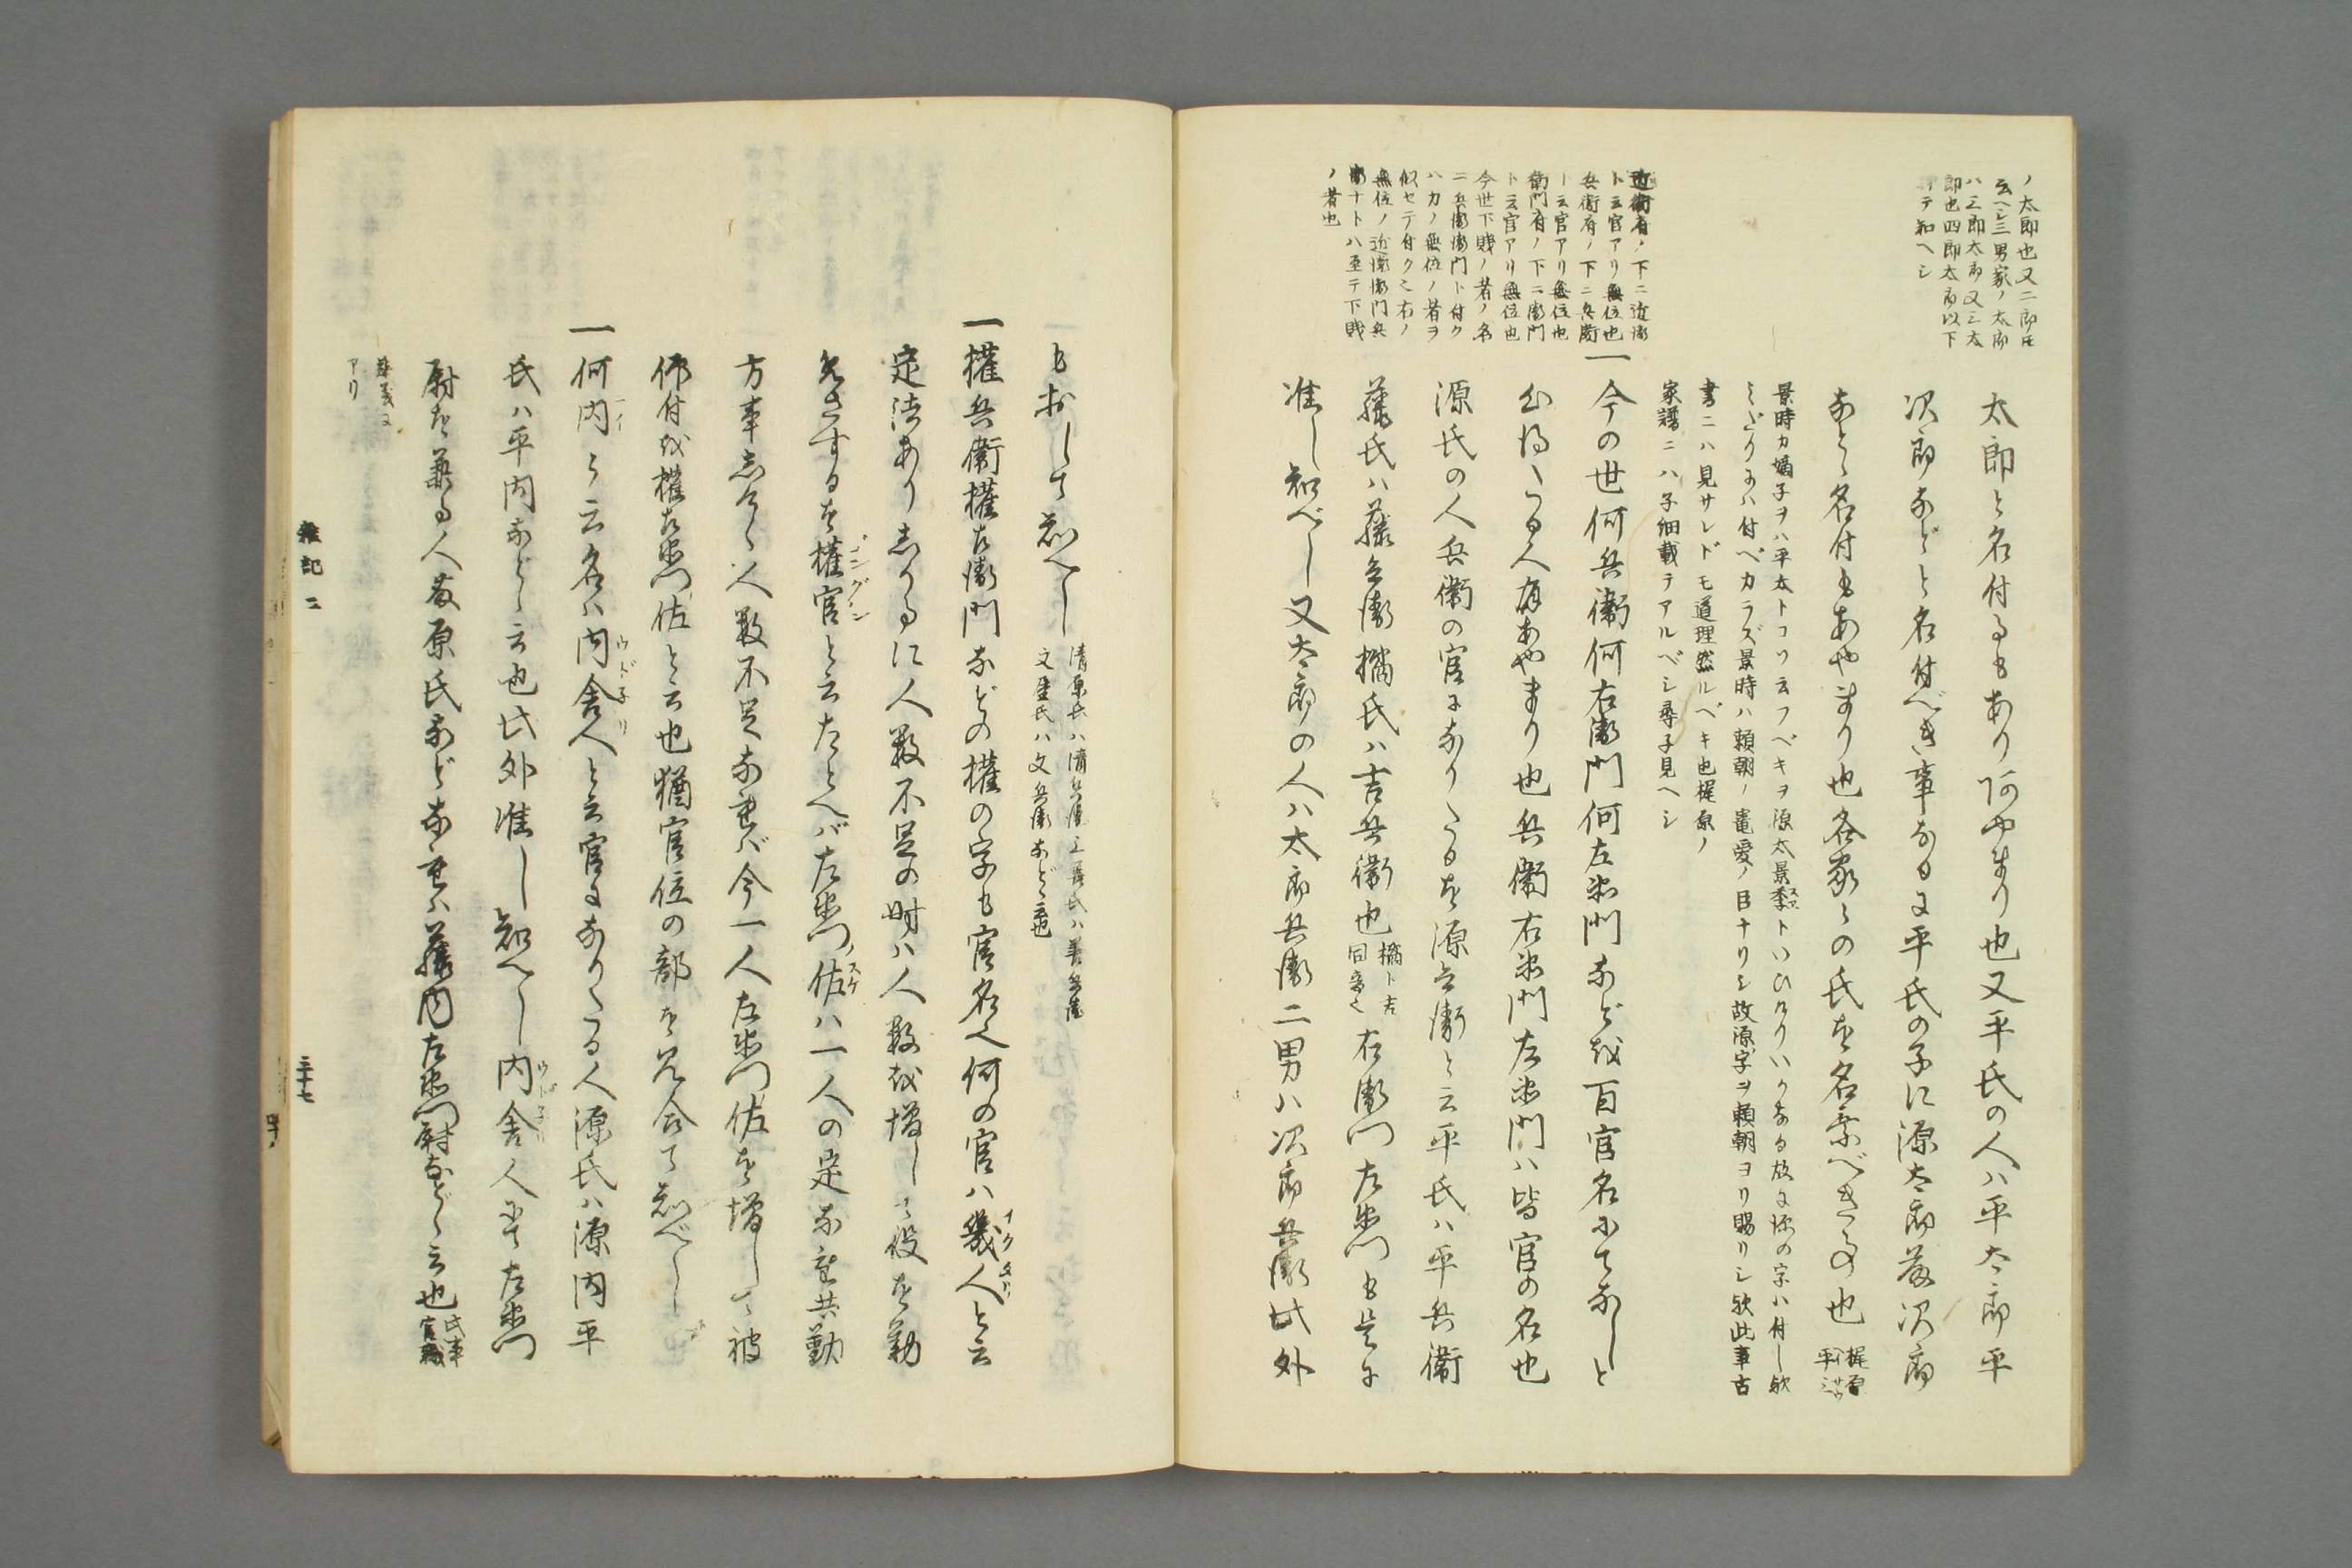 ノ太郎也又二郎トモ
云ヘシ三男家ノ太郎
ハ三郎太郎又三太
郎也四郎太郎以下
テ知ヘシ
太郎と名付るもありあやまり也又平氏の人ハ平太郎平
次郎などと名付べき事なるに平氏の子に源太郎藤次郎
など名付もあやまり也各家々の氏を名乗べき事也
梶原
平三
景時カ嫡子ヲハ平太トコソ云フベキヲ源太景季トいひけりいかなる故に源の字ハ付し歟
みだりにハ付ベカラズ景時ハ頼朝ノ寵愛ノ臣ナリシ故源ノ字ヲ頼朝ヨリ賜リシ歟此事古
書ニハ見サレドモ道理然ルベキ也梶原ノ
家譜ニハ子細載テアルベシ尋子見ヘシ
近衛府ノ下ニ近衛
ト云官アリ無位也
兵衛府ノ下ニ兵衛
ト云官アリ無位也
衛門府ノ下ニ衛門
ト云官アリ無位也
今世下賤ノ者ノ名
ニ兵衛衛門ト付ク
ハカノ無位ノ者ヲ
似セテ付ク也右ノ
無位ノ近衛衛門兵
衛ナトハ至テ下賤
ノ者也
一今の世何兵衛何右衛門何左衛門などを百官名にてなしと
心得たる人有あやまり也兵衛右衛門左衛門ハ皆官の名也
源氏の人兵衛の官になりたるを源兵衛と云平氏ハ平兵衛
藤氏ハ藤兵衛橘氏ハ吉兵衛也
橘ト吉
同音也
右衛門左衛門も是に
准し知べし又太郎の人ハ太郎兵衛二男ハ次郎兵衛此外
もおして知へし
清原氏ハ清兵衛三善氏ハ善兵衛
文屋氏ハ文兵衛などゝ云也
一権兵衛権左衛門などの権の字も官名也何の官ハ幾人と云
定法ありしかるに人数不足の時ハ人数を増して役を勤
めさするを権官と云たとへバ左衛門佐ハ一人の定なれ共勤
方事しげく人数不足なれバ今一人左衛門佐を増して被
仰付を権左衛門佐と云也猶官位の部を見合て知べし
一何内と云名ハ内舎人と云官になりたる人源氏ハ源内平
氏ハ平内などゝ云也此外准し知へし内舎人にて左衛門
尉を兼る人藤原氏などなれハ藤内左衛門尉などゝ云也
氏事
官職
アリ
雑記二
三十七